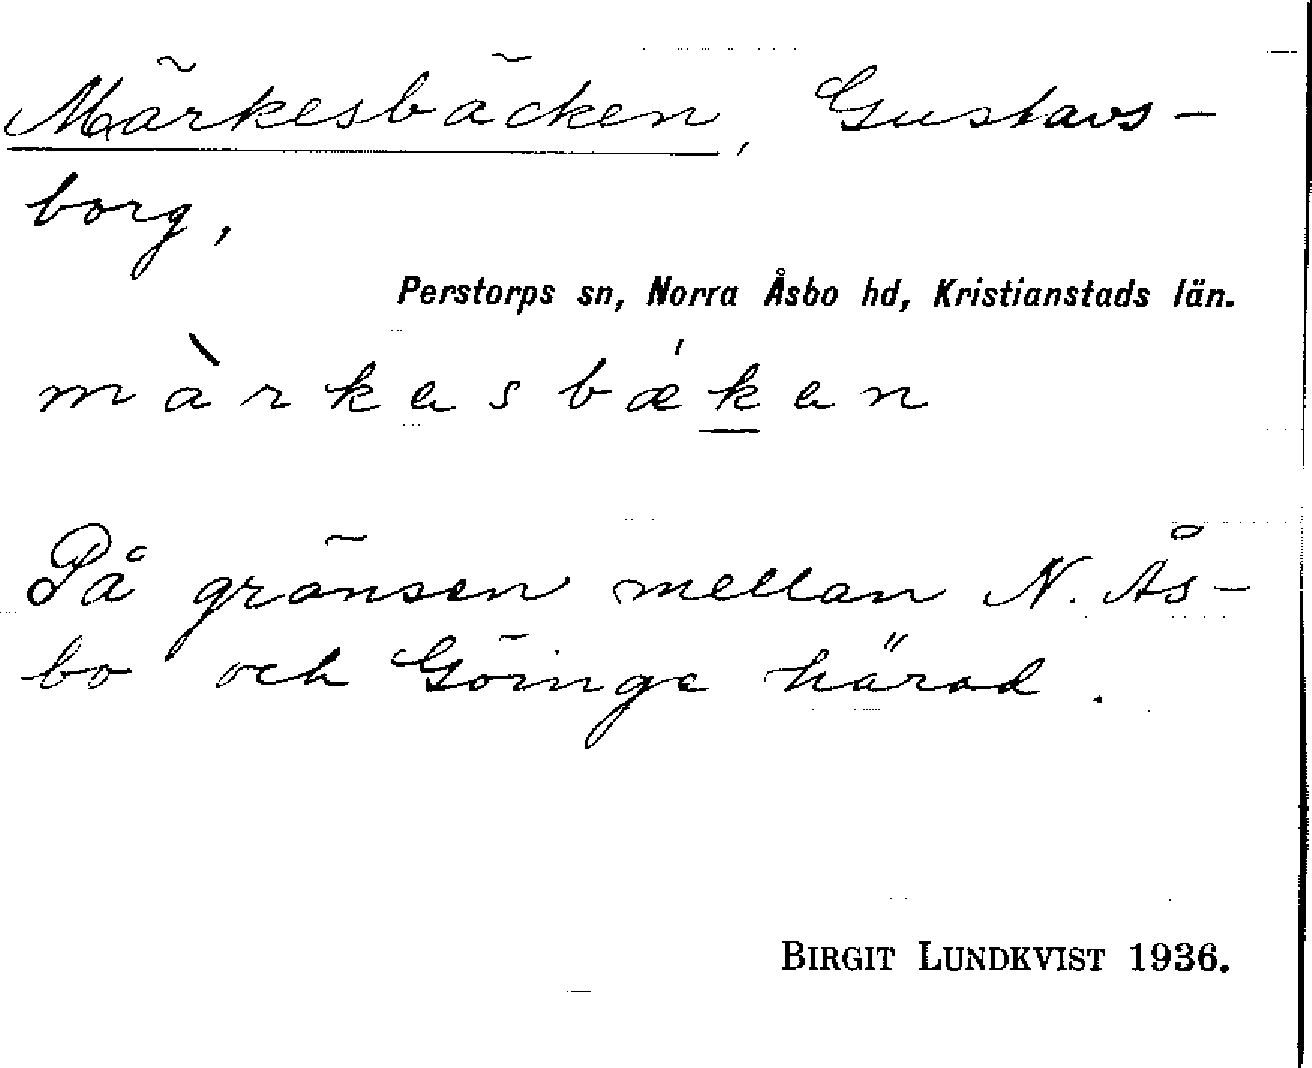 Märkesbäcken, Gustavs-
borg,
Perstorps sn, Norra Åsbo hd, Kristianstads län.
màrkasbǽkan
På gränsen mellan N. Ås-
bo och Göinge härad.
BIRGIT LUNDKVIST 1936.